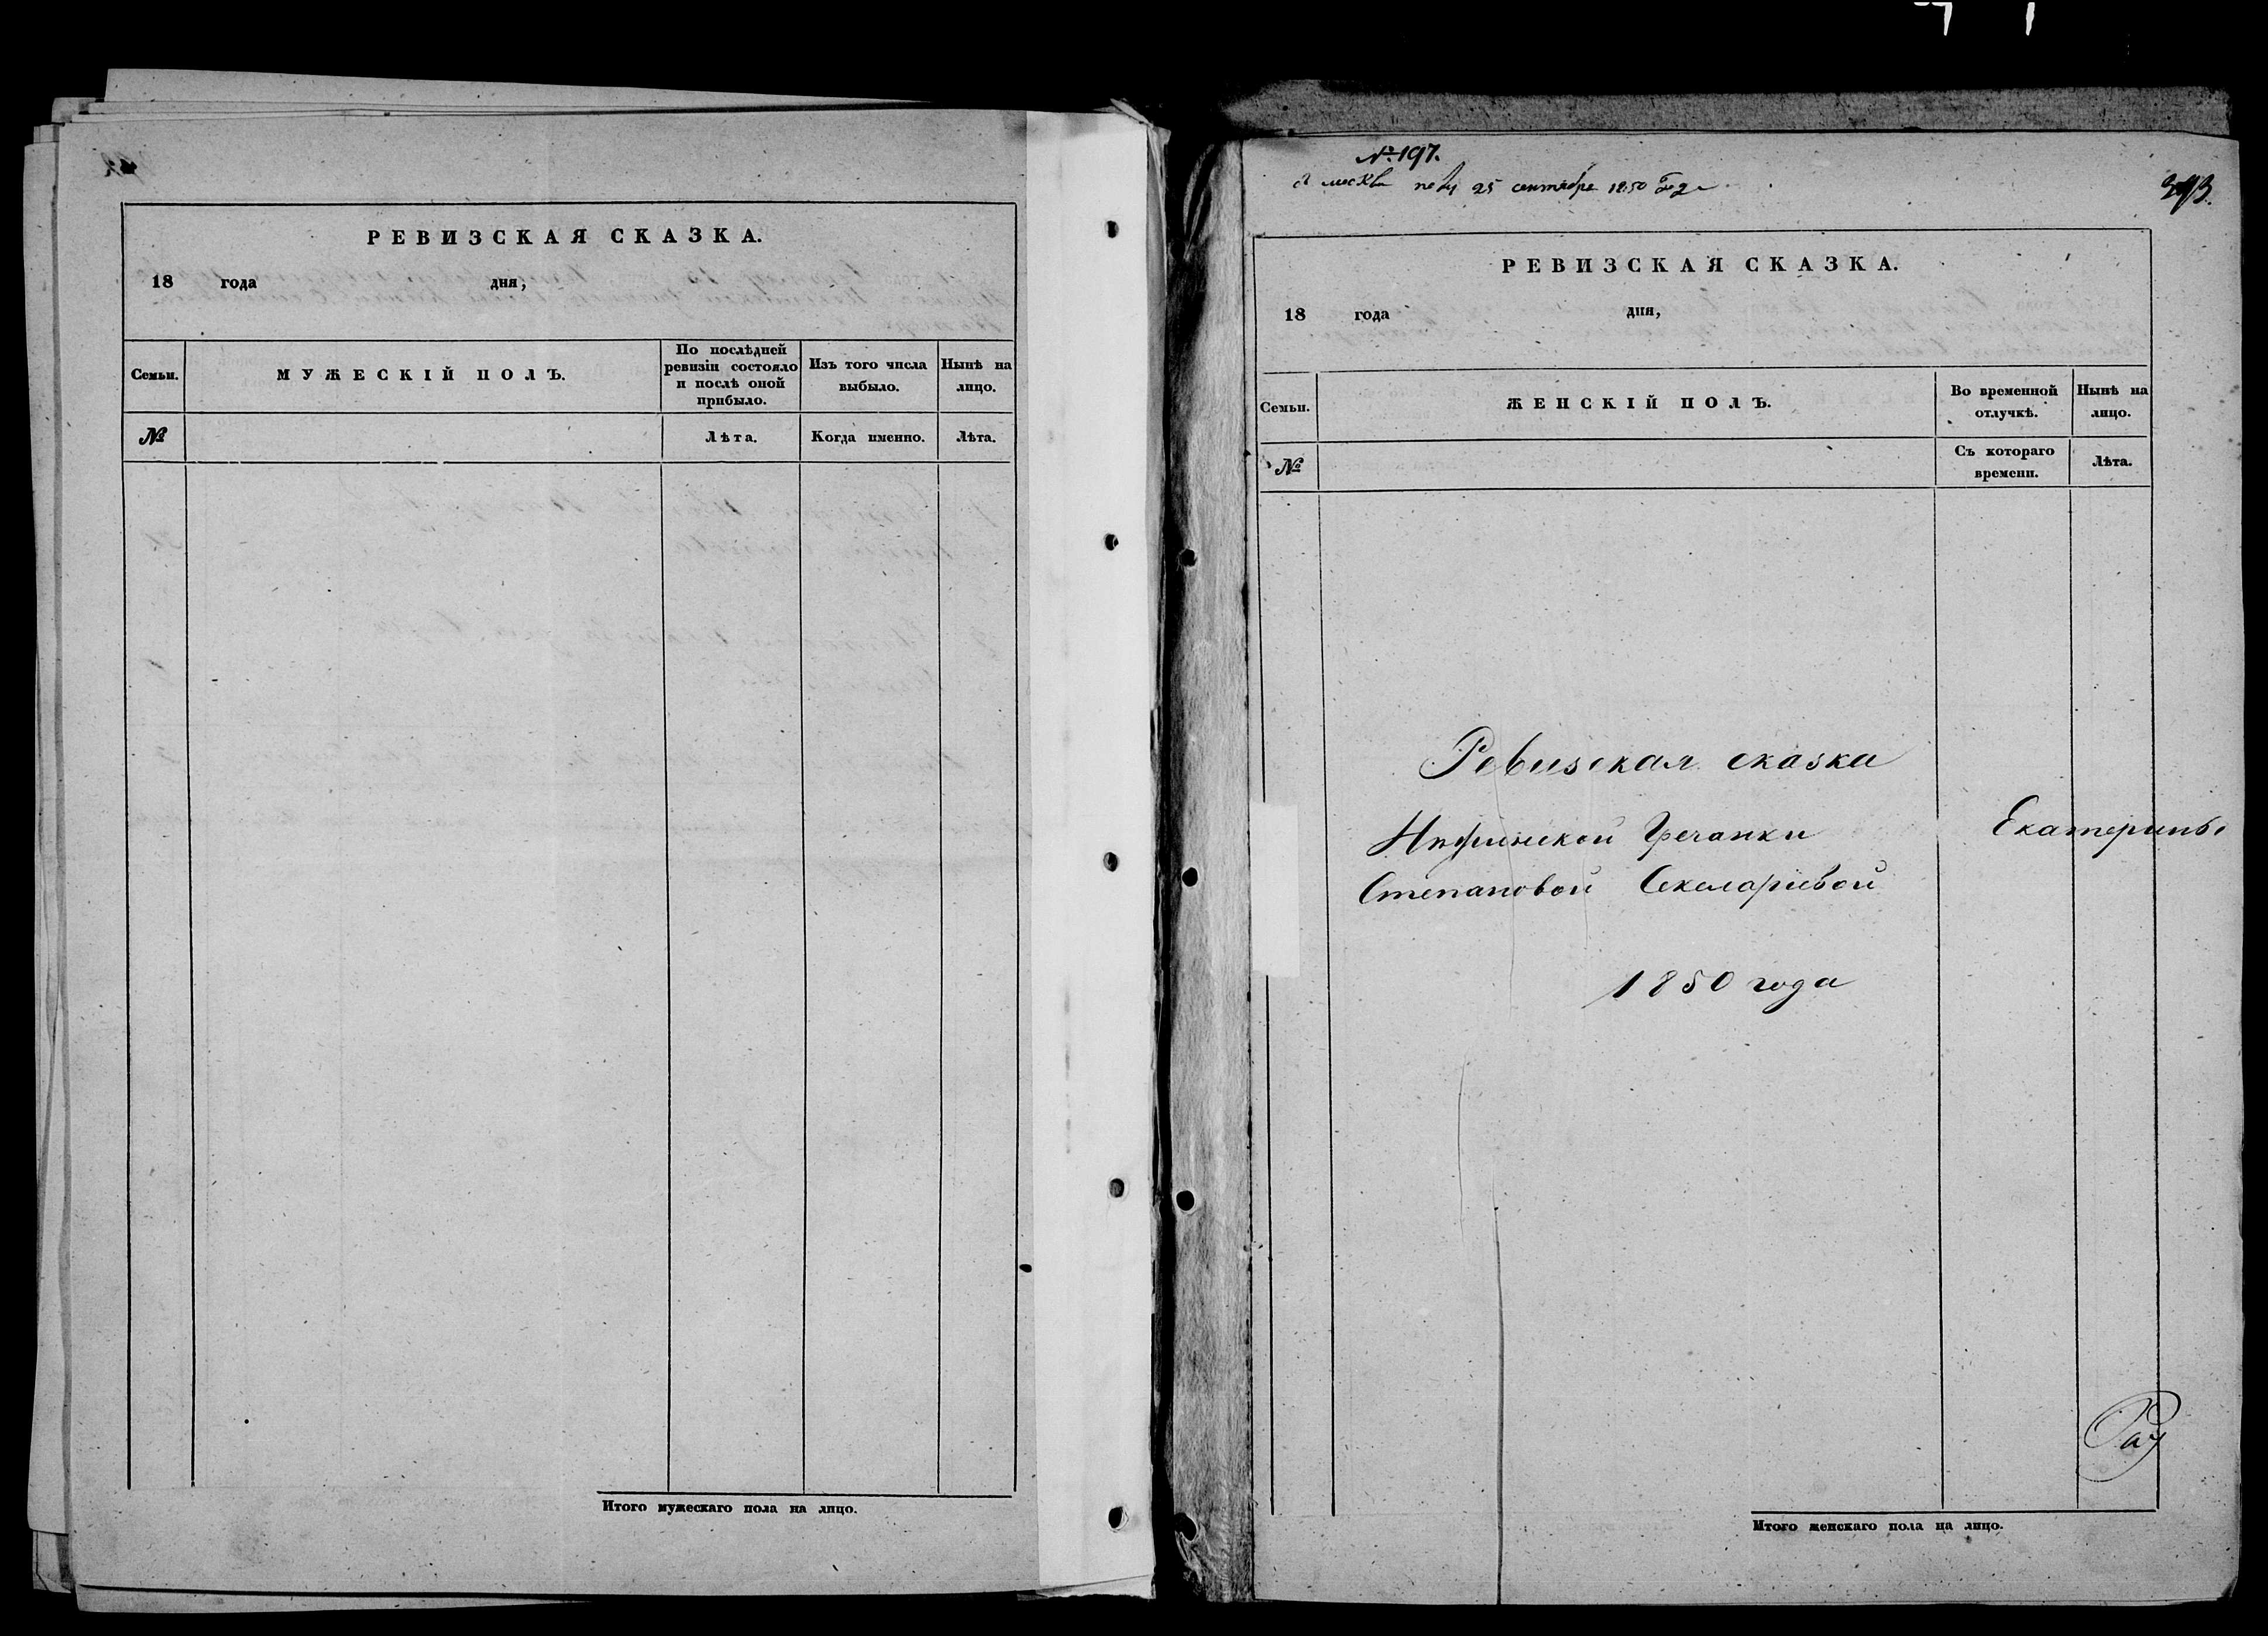 РЕВИЗСКАЯ СКАЗКА.
18 года дня,
Семьи.
МУЖЕСКІЙ ПОЛЪ.
По послѣдней ревизіи состояло и послѣ оной прибыло.
Изъ того числа выбыло.
Нынѣ на лицо.
№
Лѣта.
Когда именно.
Лѣта.
Итого мужескаго пола на лицо.
№ 197.
25 сентября 1850 года
РЕВИЗСКАЯ СКАЗКА.
18 года дня,
Семьи.
ЖЕНСКІЙ ПОЛЪ.
Во временной отлучкѣ.
Нынѣ на лицо.
№
Съ котораго времени.
Лѣта.
Ревизская сказка
Гречанки Екатерины
Степановой Секеларіевой
1850 года
Итого женскаго пола на лицо.